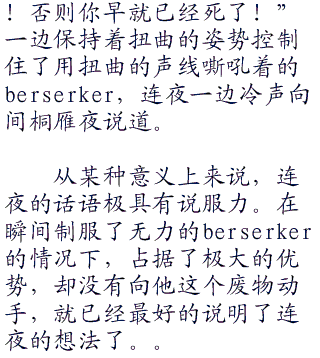 ！否则你早就已经死了！”
一边保持着扭曲的姿势控制
住了用扭曲的声线嘶吼着的
berserker，连夜一边冷声向
间桐雁夜说道。
从某种意义上来说，连
夜的话语极具有说服力。在
瞬间制服了无力的berserker
的情况下，占据了极大的优
势，却没有向他这个废物动
手，就已经最好的说明了连
夜的想法了。。